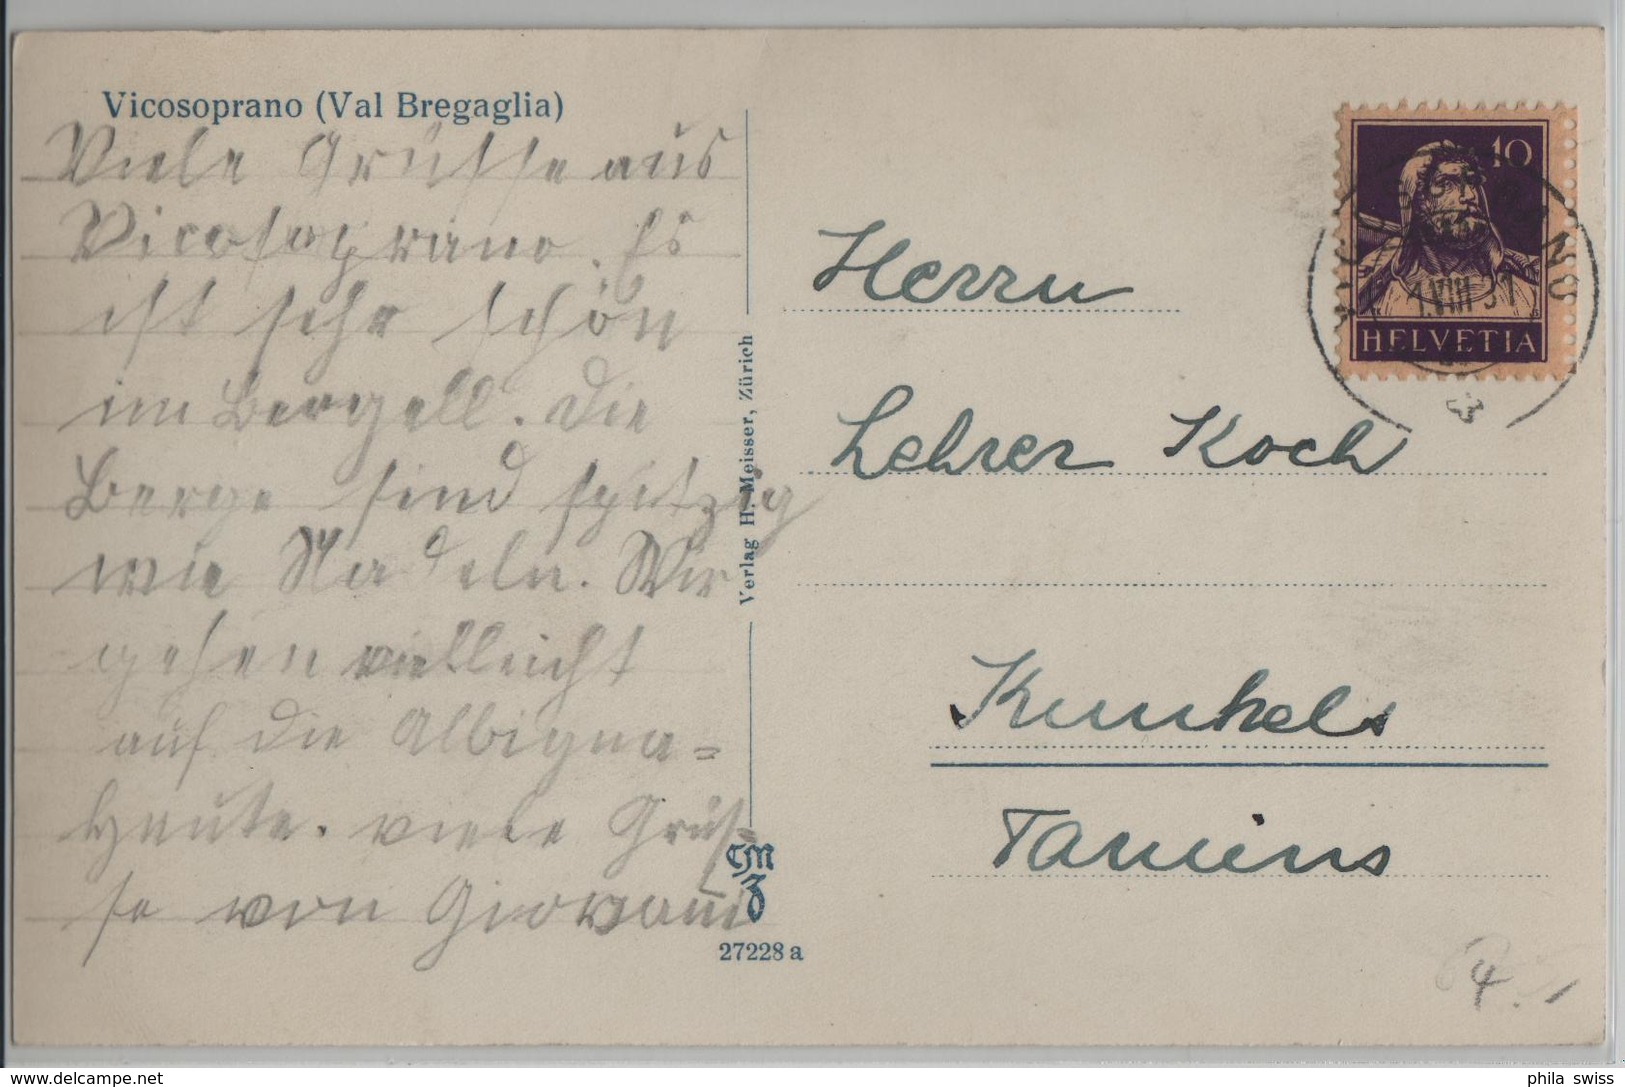 Vicosoprano (Val Bregaglia)
Viele Grüsse aus
Vicosoprano. Es
ist sehr schön
im Bergell. Die
Berge sind spitzig
wie Nadeln. Wir
gehen vielleicht
auf die Albigna=
Heute. viele Grüs-
se von Giovanni
Verlag H. Meisser, Zürich
CM
Z
27228 a
10
HELVETIA
VICOSOPRANO
1.VIII 37
Herrn
Lehrer Koch
Kunkels
Tamins
4.
phila swiss
www.delcampe.net